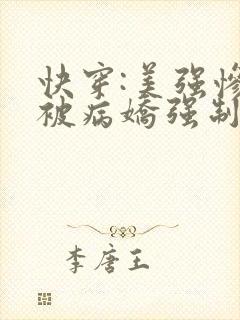 快穿:美强惨
被病娇强制
李唐王